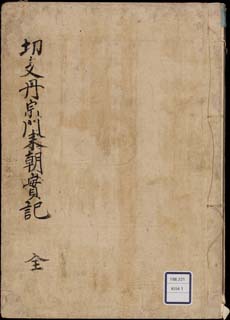 切支丹宗門来朝實記
全
198.221